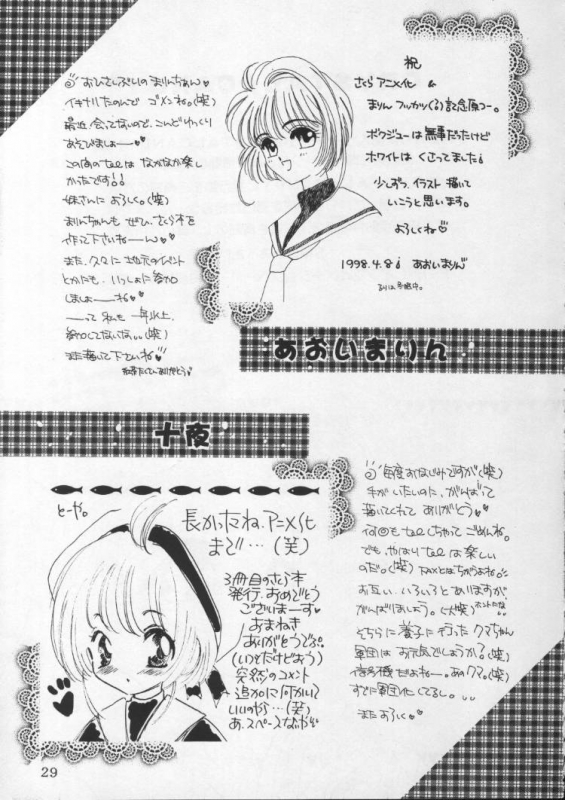 おひさしぶりの まりんちゃん♥
イキナリたのんで ゴメンね。(笑)
最近、会ってないので、こんどゆっくり
あそびましょー♥
この前のtelは なかなか楽し
かったです!!
妹さんに よろしく。(笑)
まりんちゃんも ぜひ、さくら本を
作って下さいねーん♥
また、久々に 地元のイベント
とかにも、いっしょに参加
しましょーね♥
──って 私も 一年以上、
参加してないな。。(笑)
また 描いて下さいね♥
祝
さくら アニメ化 &
まりん フッカツ(る)記念原つー。
ボウジューは 無事だったけど
ホワイトは くさってました
少しずつ、イラスト 描いて
いこうと思います。
よろしくね♡
1998.4.8 あおいまりん
あおいまりん
十夜
とーや。
長かったね、アニメ化
まで…(笑)
3冊目のさくら本
発行、おめでとう
ございまーす♥
おまねき
ありがとうでぷ。
(いつどだけどねう)
突然のコメント
追加に何かいて
いいのか…(笑)
あ、スペースなかぞ
毎度おなじみですが(笑)
手がいたいのに、がんばって
描いてくれて ありがとう♥
何回も telしちゃって ごめんね。
でも、やはり telは 楽しい
のだ。(笑) FAXとはちがうよね。
お互い、いろいろとありますが、
がんばりましょう。(笑)
そちらに 養子に 行った クマちゃん
軍団は お元気でしょうか?。(笑)
信号機だよねー。あのクマ。(笑)
すでに軍団化してるし。。。
また よろしく♥
29